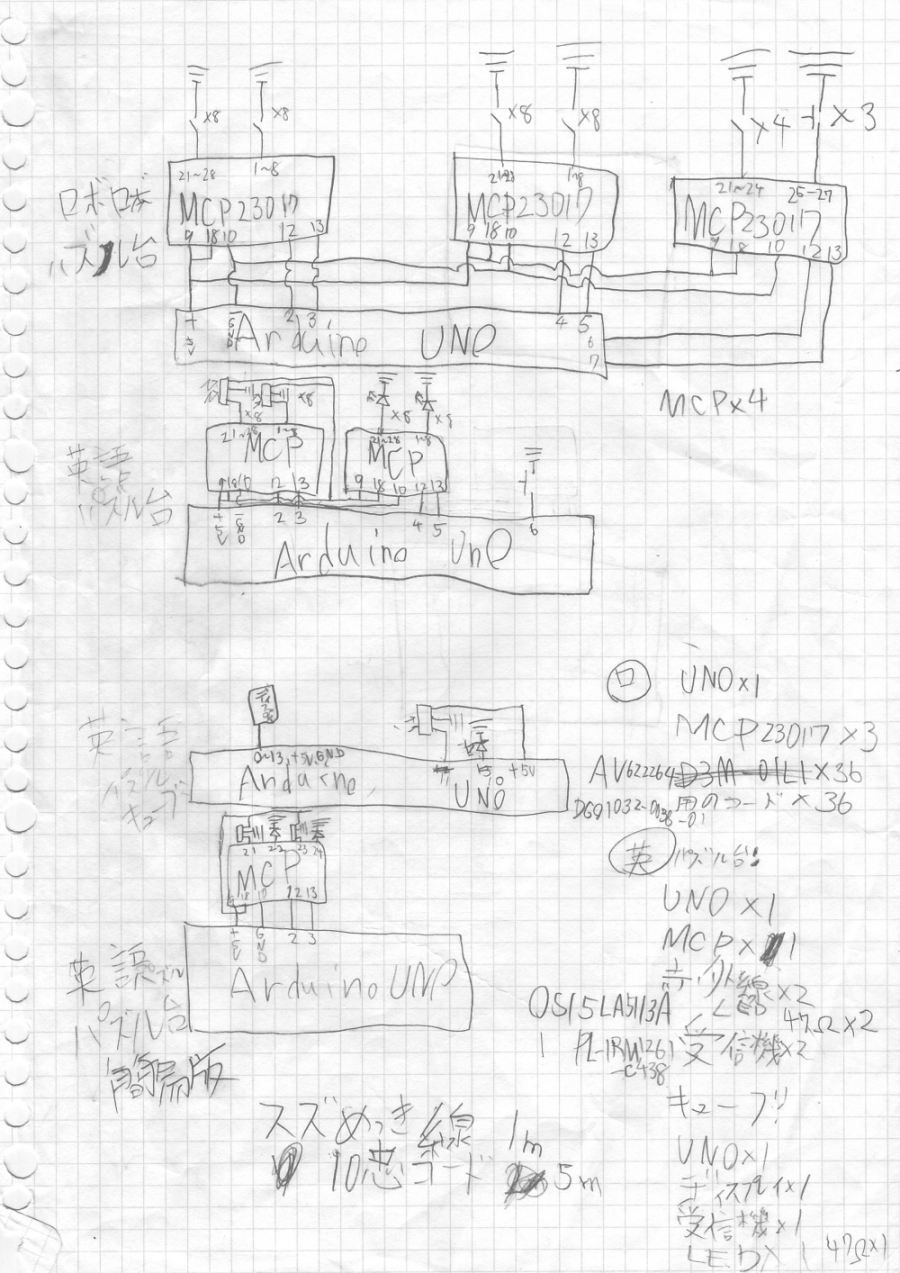 ×8
×8
×8
×8
×4
×3
21~28
1~8
MCP23017
9 18 10 12 13
21~28
1~8
MCP23017
9 18 10 12 13
21~24
25-27
MCP23017
9 18 10 12 13
ロボロボ
パズル台
+5V
GND
2 3
4 5
6
7
Arduino UNO
MCP×4
×8
×8
×8
×8
21~28
1~8
MCP
9 18 10 12 13
21~28
1~8
MCP
9 18 10 12 13
英語
パズル台
+5V
GND
2 3
4 5
6
Arduino Uno
英語
パズル
キューブ
0~13,+5V,GND
11
13
+5V
Arduino
UNO
21 22 23 24
MCP
9 18 10 12 13
+5V
GND
2 3
Arduino UNO
英語パズル
パズル台
簡易版
スズめっき線 1m
10芯コード 5m
ロ UNO×1
MCP23017×3
AV622264 D3M-01L1×36
DGQ1032-0036-01 用のコード×36
英 パズル台!
UNO×1
MCP×1
赤外線LED×2
OSI5LA5113A 47Ω×2
PL-IRM1261-C438 受信機×2
キューブ!!
UNO×1
ディスプレイ×1
受信機×1
LED×1 47Ω×1